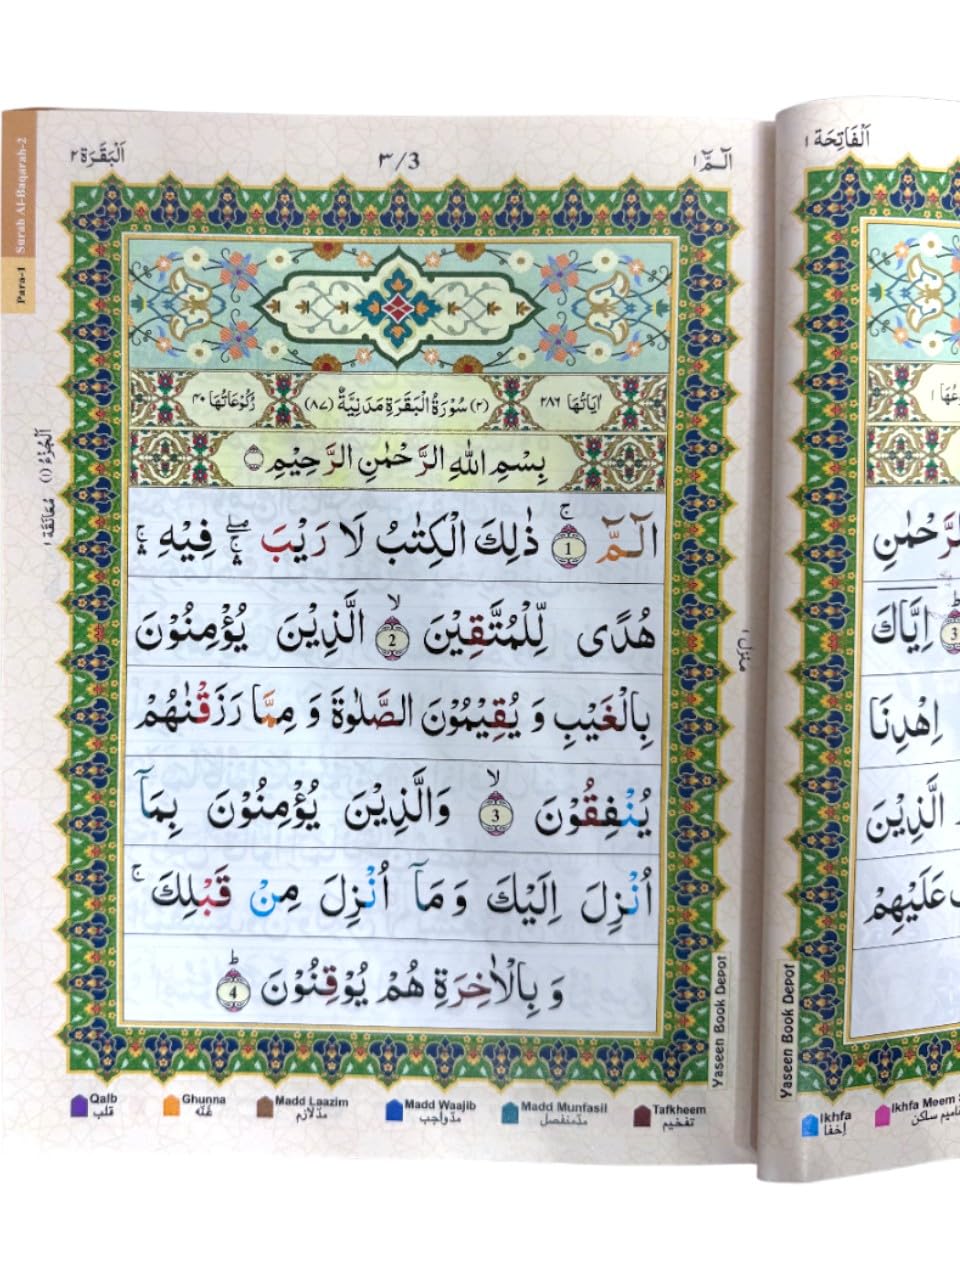 Surah Al-Baqarah-2
Para-1
اَلْبَقَرَة ٢
٣/3
الٓمّٓ ١
اٰیَاتُهَا ٢٨٦
(٢) سُوْرَةُ الْبَقَرَةِ مَدَنِیَّةٌ (٨٧)
رُكُوْعَاتُهَا ٤٠
بِسْمِ اللّٰهِ الرَّحْمٰنِ الرَّحِیْمِ
الٓمّٓ ۚ 1 ذٰلِكَ الْكِتٰبُ لَا رَیْبَ ۛۖ فِیْهِ ۛۚ
هُدًی لِّلْمُتَّقِیْنَ ۙ 2 الَّذِیْنَ یُؤْمِنُوْنَ
بِالْغَیْبِ وَ یُقِیْمُوْنَ الصَّلٰوةَ وَ مِمَّا رَزَقْنٰهُمْ
یُنْفِقُوْنَ ۙ 3 وَالَّذِیْنَ یُؤْمِنُوْنَ بِمَاۤ
اُنْزِلَ اِلَیْكَ وَ مَاۤ اُنْزِلَ مِنْ قَبْلِكَ ۚ
وَ بِالْاٰخِرَةِ هُمْ یُوْقِنُوْنَ ؕ 4
اَلْجُزْءُ (١)
مُعَانَقَة ١
منزل ١
Yaseen Book Depot
Qalb
قلب
Ghunna
غُنّه
Madd Laazim
مدّلازم
Madd Waajib
مدّواجب
Madd Munfasil
مدّمنفصل
Tafkheem
تفخیم
اَلْفَاتِحَة ١
الرَّحْمٰنِ
3 اِیَّاكَ
اِهْدِنَا
الَّذِیْنَ
عَلَیْهِمْ
Yaseen Book Depot
Ikhfa
اِخفا
Ikhfa Meem